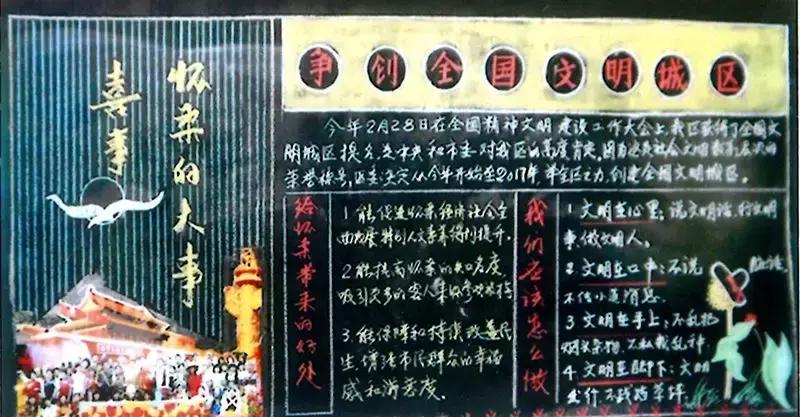 怀柔的大事
喜事
争创全国文明城区
今年2月28日在全国精神文明建设工作大会上,我区获得了全国文
明城区提名,是中央和市委对我区的高度肯定。因为这是社会文明最高层次的
荣誉称号,区委决定从今年开始至2017年,举全区之力,创建全国文明城区。
给怀柔带来的好处
1.能促进怀柔经济社会全
面发展,特别人文素养得到提升。
2.能提高怀柔的知名度
吸引更多的客人来怀
3.能保障和持续改善民
生,增强市民群众的幸福
感和满意度。
我们应该怎么做
1.文明在心里:说文明话,行文明
事,做文明人。
2.文明在口中:不说脏话,
不传小道消息。
3.文明在手上:不乱扔
烟头杂物,不私
4.文明在脚下:文明
出行不践踏草坪。